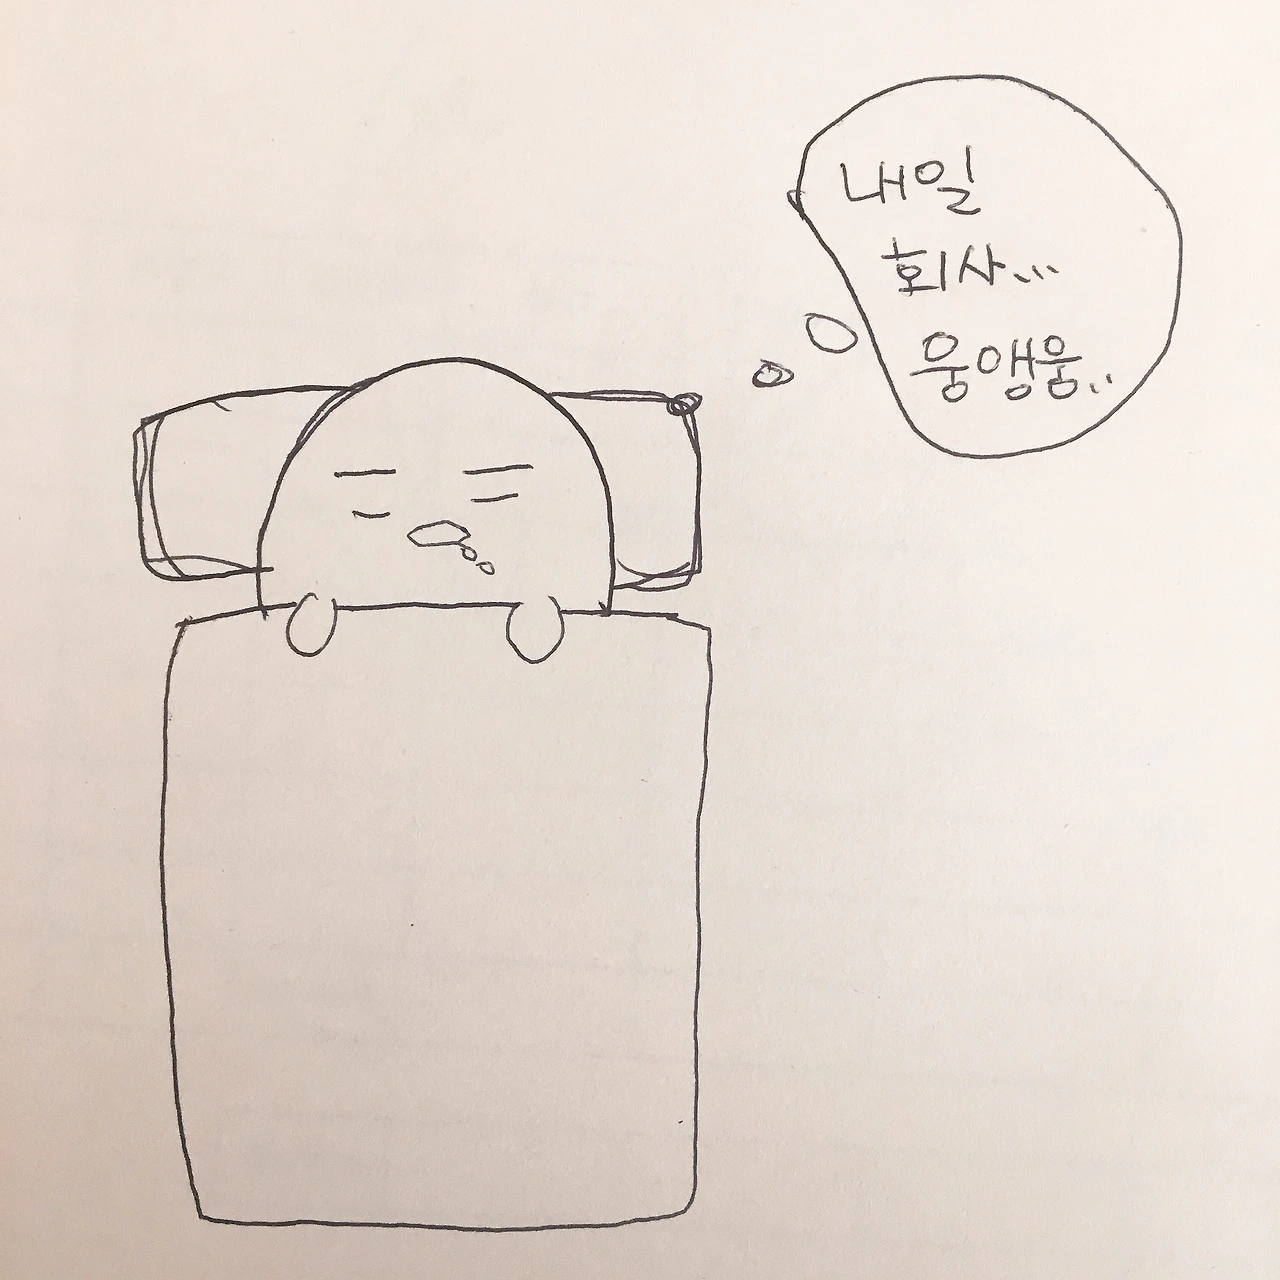 내일
회사...
웅앵웅..